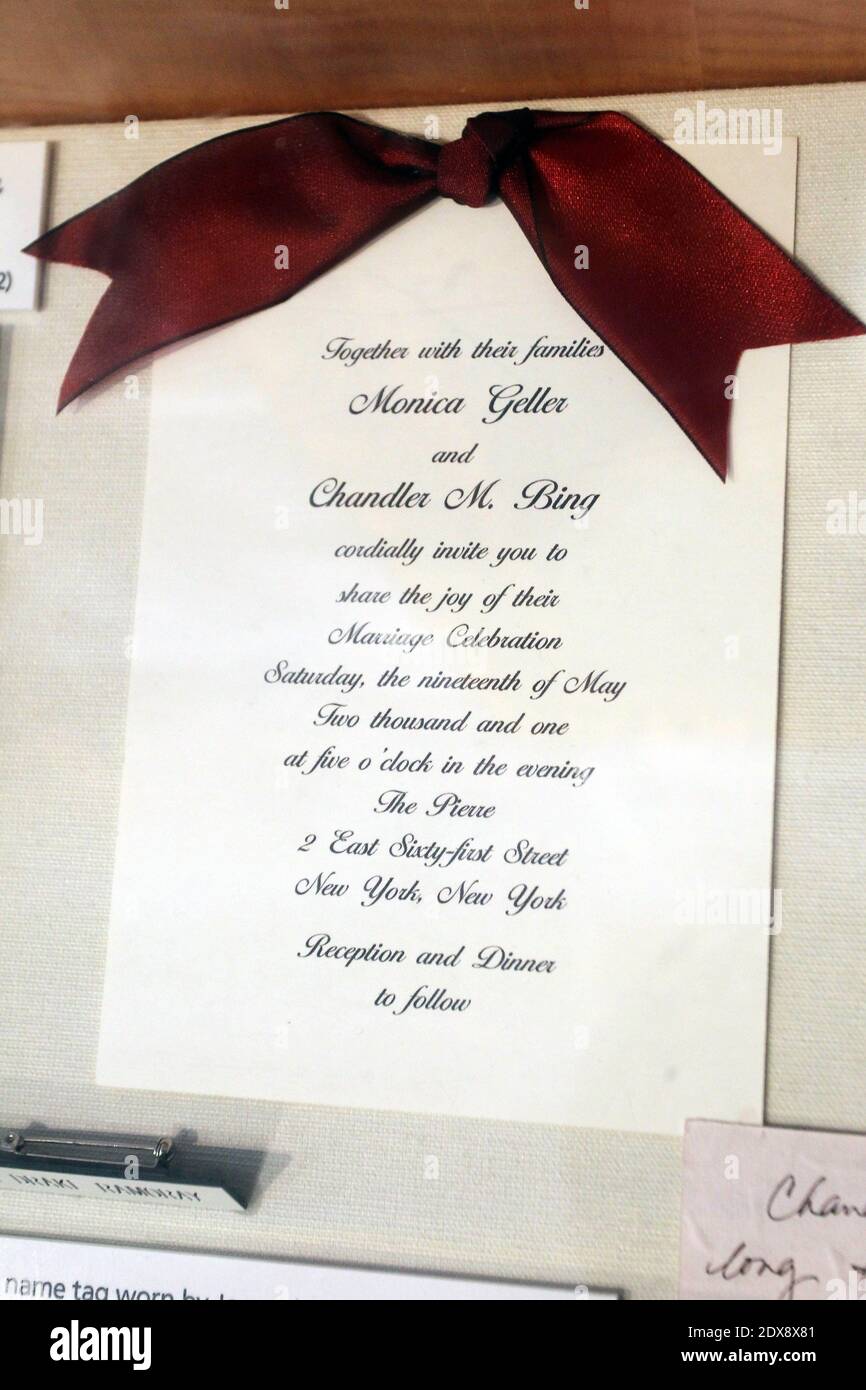 2)
Together with their families
Monica Geller
and
Chandler M. Bing
cordially invite you to
share the joy of their
Marriage Celebration
Saturday, the nineteenth of May
Two thousand and one
at five o'clock in the evening
The Pierre
2 East Sixty-first Street
New York, New York
Reception and Dinner
to follow
DRAKE RAMORAY
name tag worn by
Chan
long
alamy
Image ID: 2DX8X81
www.alamy.com